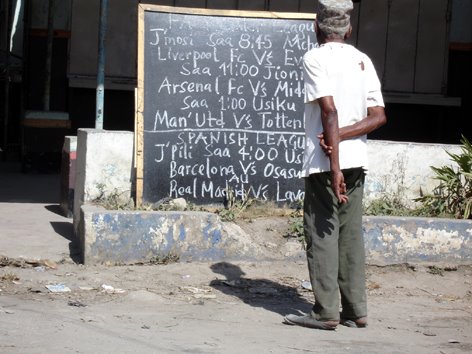 J'mosi Saa 8:45 Mcha
Liverpool Fc Vs Ev
Saa 11:00 Jioni
Arsenal Fc Vs Midd
Saa 1:00 Usiku
Man'Utd Vs Totten
SPANISH LEAGU
J'Pili Saa 4:00 Usi
Barcelona Vs Osasu
AU
Real Madrid Vs Lava